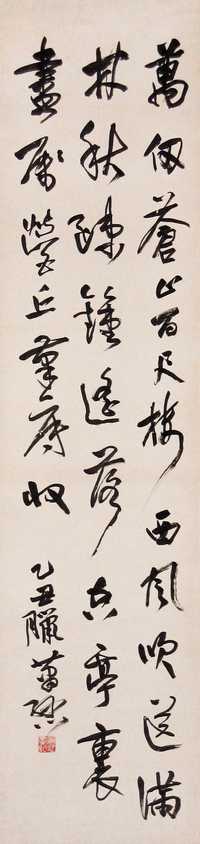 萬仞蒼山百尺樓西風吹送滿
林秋疎鐘遙落空亭裏
盡屬營丘收
乙丑臘蕭勞